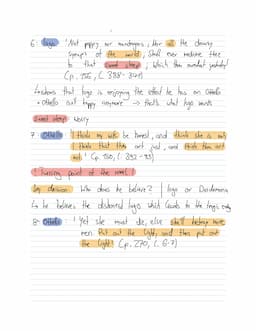 6: Iago 'Not poppy, nor mandragora, Nor all the drowsy
syrups of the world, Shall ever medicine thee
to that sweet sleep; Which thou owedst yesterday'
(p. 156, l.
↳ shows that Iago is enjoying the effect he has on Othello
• Othello not happy anymore → that's what Iago wants
Sweet sleep: worry
7: Othello: I think my wife be honest, and think she is not
I think that thou art just, and think thou art
not' (p. 160, l.
Turning point of the
big decision: Who does he believe? Iago or Desdemona
↳ he believes the dishonest Iago which leads to the tragic
8: Othello: 'Yet she must die, else she'll betray more
men. Put out the light, and then put out
the light' (p. 270, l. 6-7)